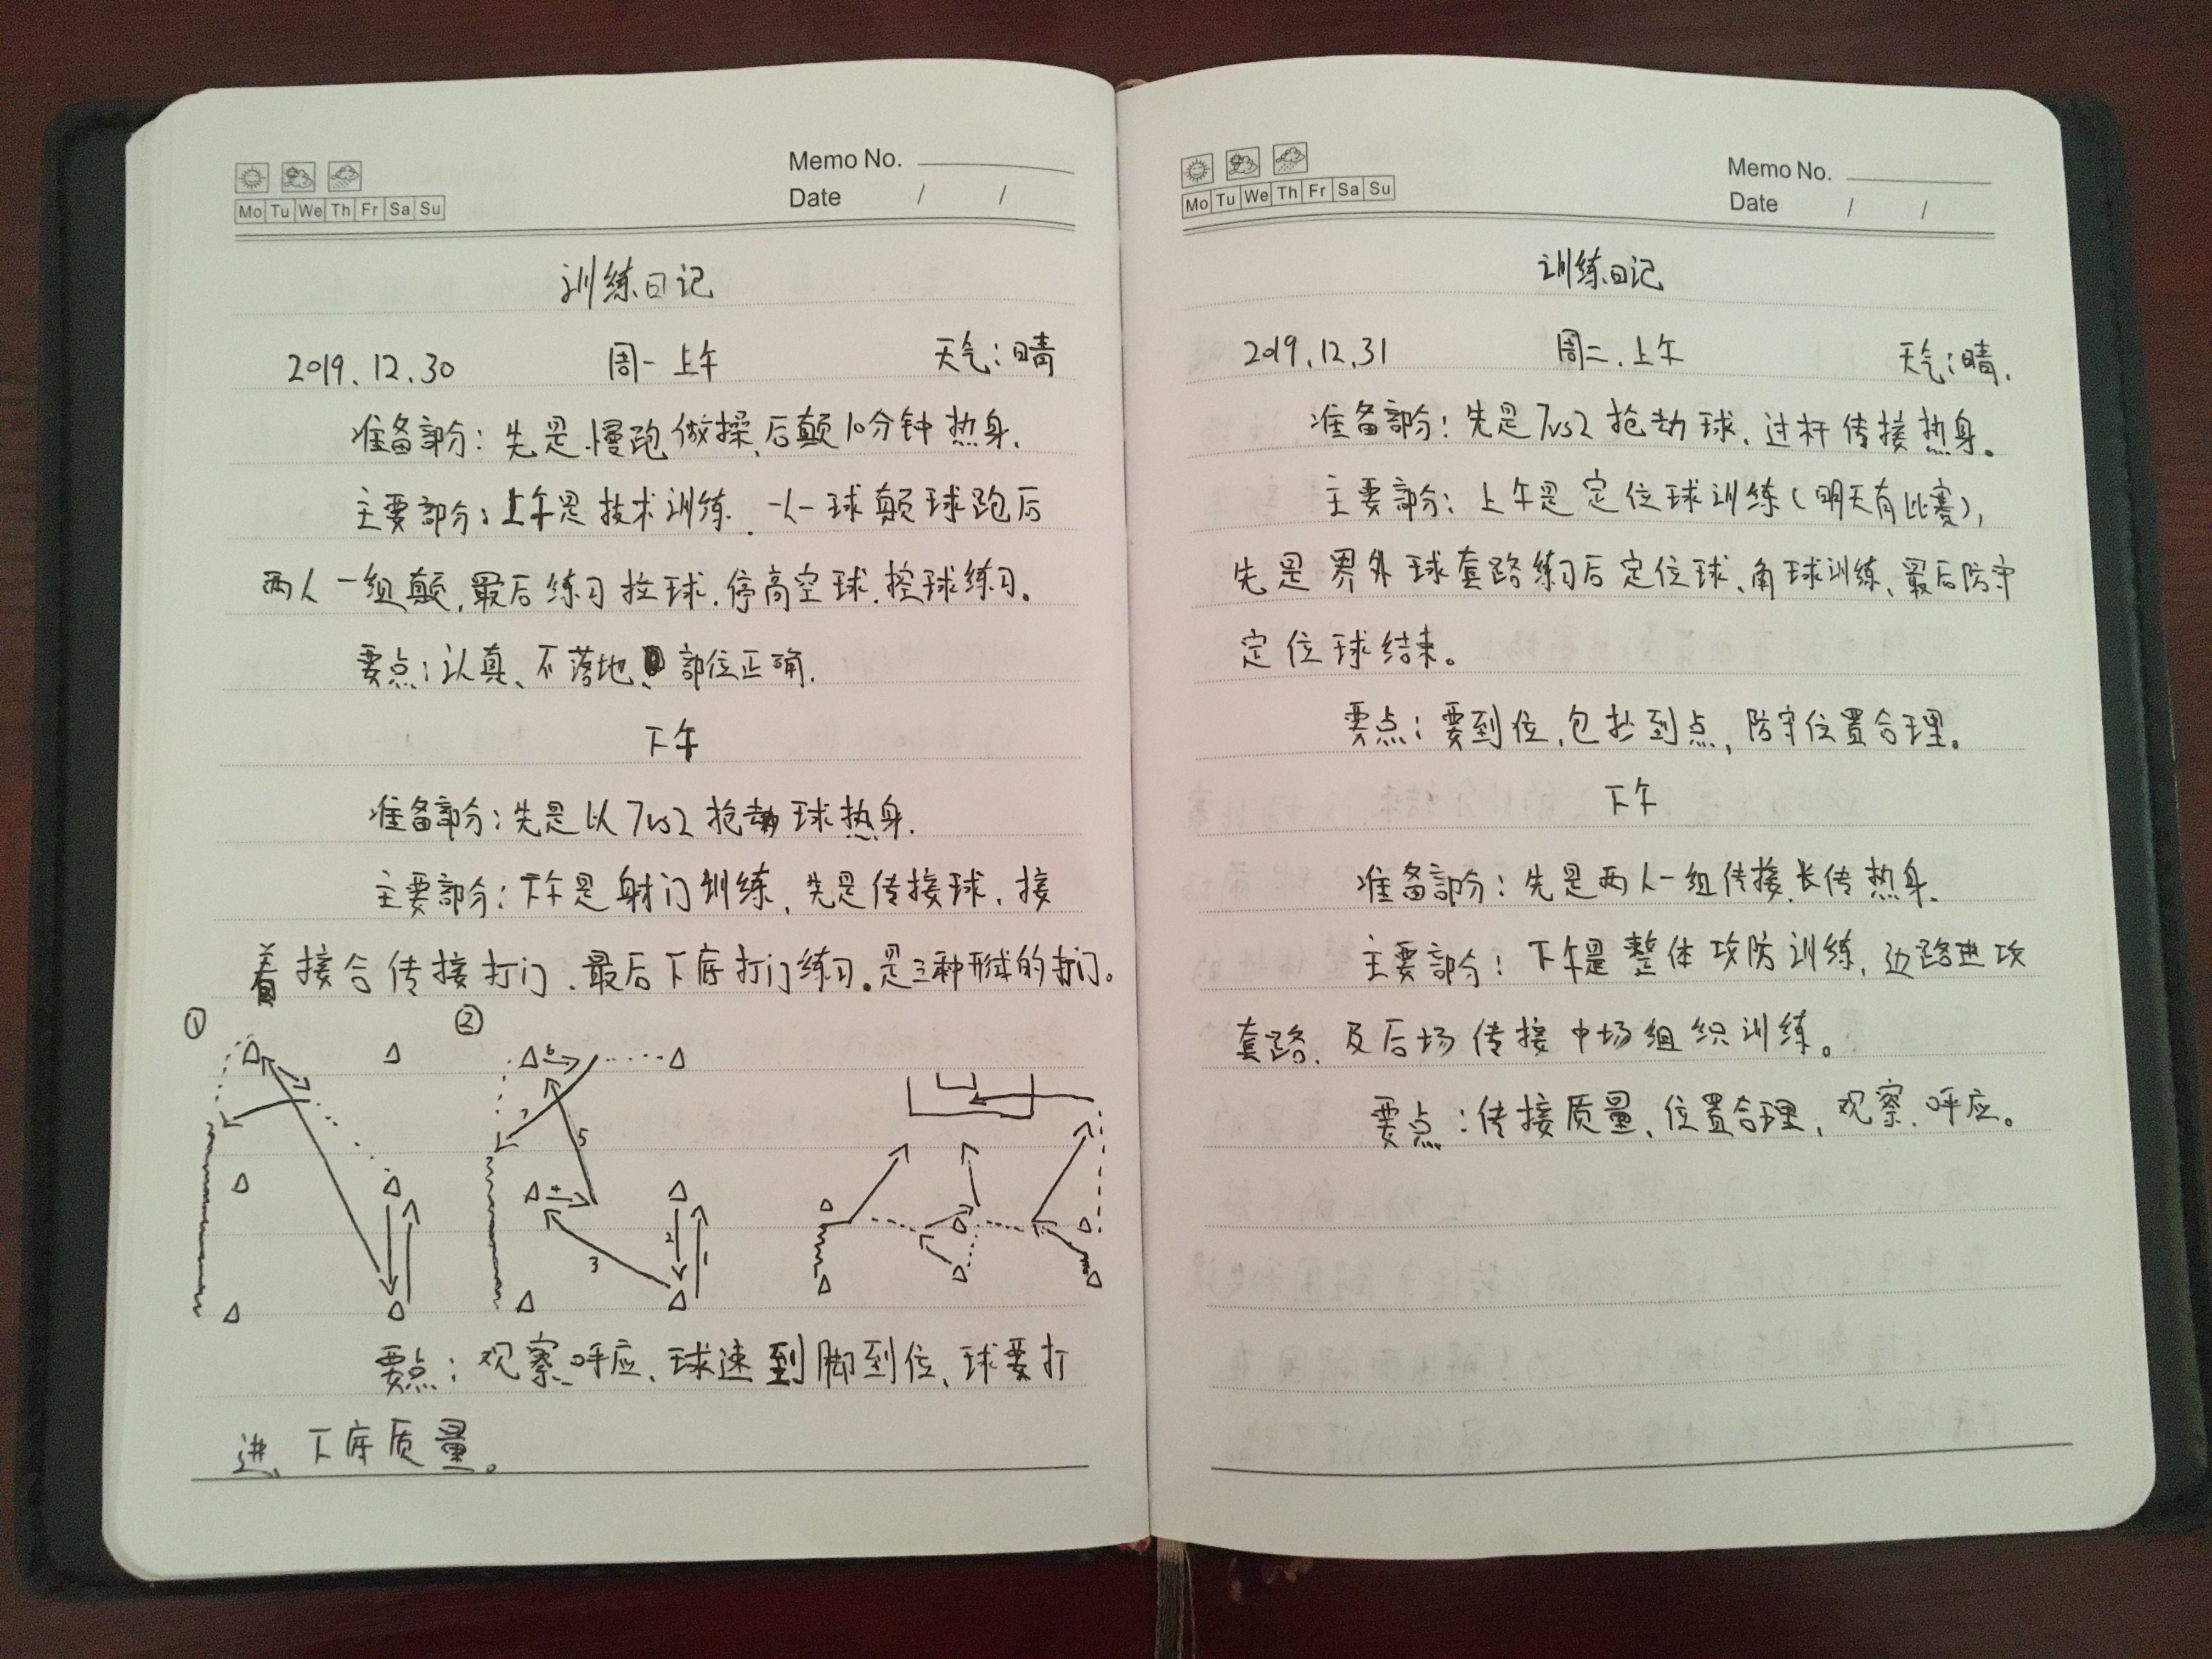 Memo No.
Mo Tu We Th Fr Sa Su
Date / /
训练日记
2019.12.30 周一上午 天气:晴
准备部分:先是慢跑做操、后颠10分钟热身.
主要部分:上午是技术训练.一人一球颠球跑后
两人一组颠,最后练习拉球.停高空球.控球练习。
要点:认真、不落地、部位正确.
下午
准备部分:先是以7vs2抢劫球热身.
主要部分:下午是射门训练,先是传接球.接
着接合传接打门.最后下底打门练习。是三种形式的打门。
① ②
6
7
5
4
3
2 1
要点:观察呼应、球速到脚到位、球要打
进、下底质量。
Memo No.
Mo Tu We Th Fr Sa Su
Date / /
训练日记
2019.12.31 周二.上午 天气:晴.
准备部分:先是7vs2抢劫球.过杆传接热身。
主要部分:上午是定位球训练(明天有比赛),
先是界外球套路练习后定位球、角球训练、最后防守
定位球结束。
要点:要到位,包抄到点,防守位置合理。
下午
准备部分:先是两人一组传接.长传热身.
主要部分:下午是整体攻防训练,边路进攻
套路.及后场传接中场组织训练。
要点:传接质量、位置合理,观察.呼应。